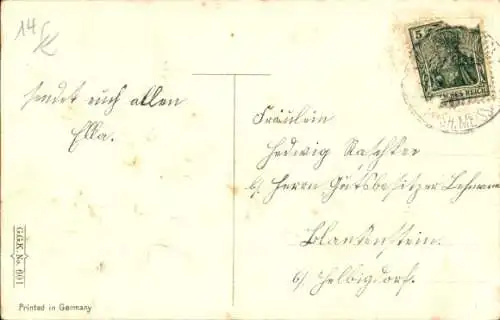 14
K
sendet euch allen
Ella.
5
DEUTSCHES REICH
Fräulein
Hedwig Raschker
b/ Herrn Gutsbesitzer Lehmann
Blankenstein.
b/ Helbigsdorf.
G.G.K. No. 601
Printed in Germany